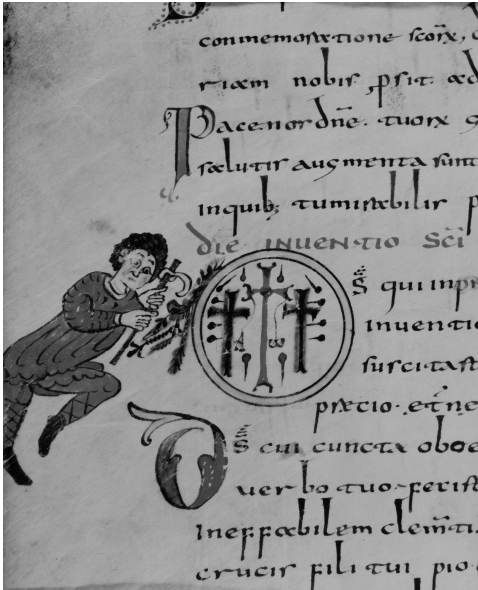 conmemoratione scorꝝ,
riam nobis ꝓsit ad
Pace nos dn̄e. tuorꝝ
salutis augmenta sunt
in quib; tu mirabilis p
die inventio sc̄i
D̄s qui inpr
inventio
suscitast
A ω
praecio. et ne
D̄s cui cuncta oboe
verbo tuo fecist
ineffabilem clem̄ti
crucis fili tui pio